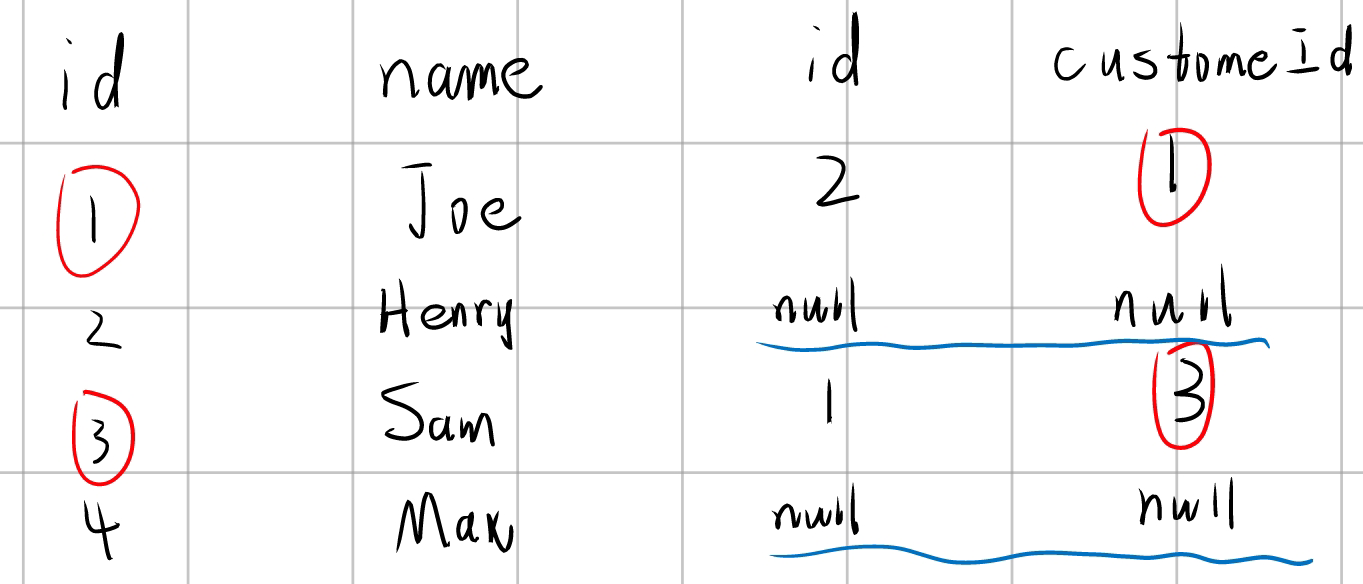 id name id custome Id
1 Joe 2 1
2 Henry null null
3 Sam 1 3
4 Max null null